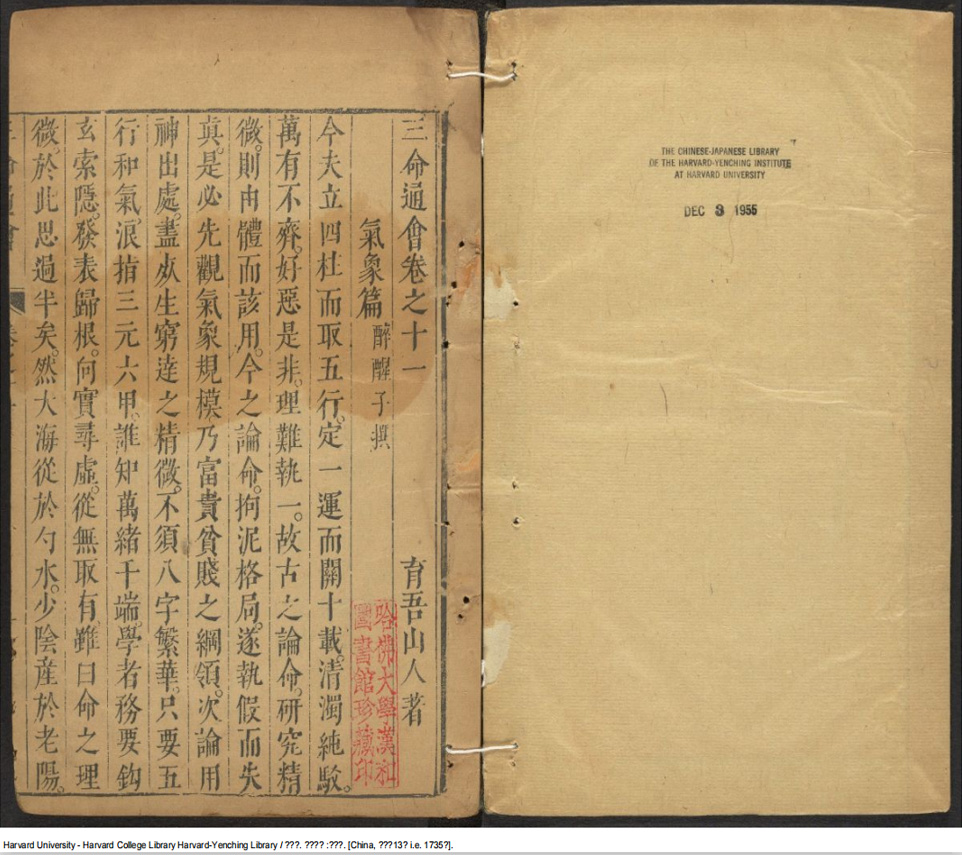 THE CHINESE-JAPANESE LIBRARY
OF THE HARVARD-YENCHING INSTITUTE
AT HARVARD UNIVERSITY
DEC 3 1955
三命通會卷之十一 育吾山人著
氣象篇 醉醒子撰
哈佛大學漢和
圖書館珍藏印
今夫立四柱而取五行。定一運而關十載。清濁純駁。
萬有不齊。好惡是非。理難執一。故古之論命。研究精
微。則由體而該用。今之論命。拘泥格局。遂執假而失
真。是必先觀氣象規模乃富貴貧賤之綱領。次論用
神出處。盡死生窮達之精微。不須八字繁華。只要五
行和氣。浪指三元六甲。誰知萬緒千端。學者務要鈎
玄索隱。發表歸根。向實尋虛。從無取有。雖曰命之理
微。於此思過半矣。然大海從於勺水。少陰產於老陽。
Harvard University - Harvard College Library Harvard-Yenching Library / ???. ???? :???. [China, ???13? i.e. 1735?].